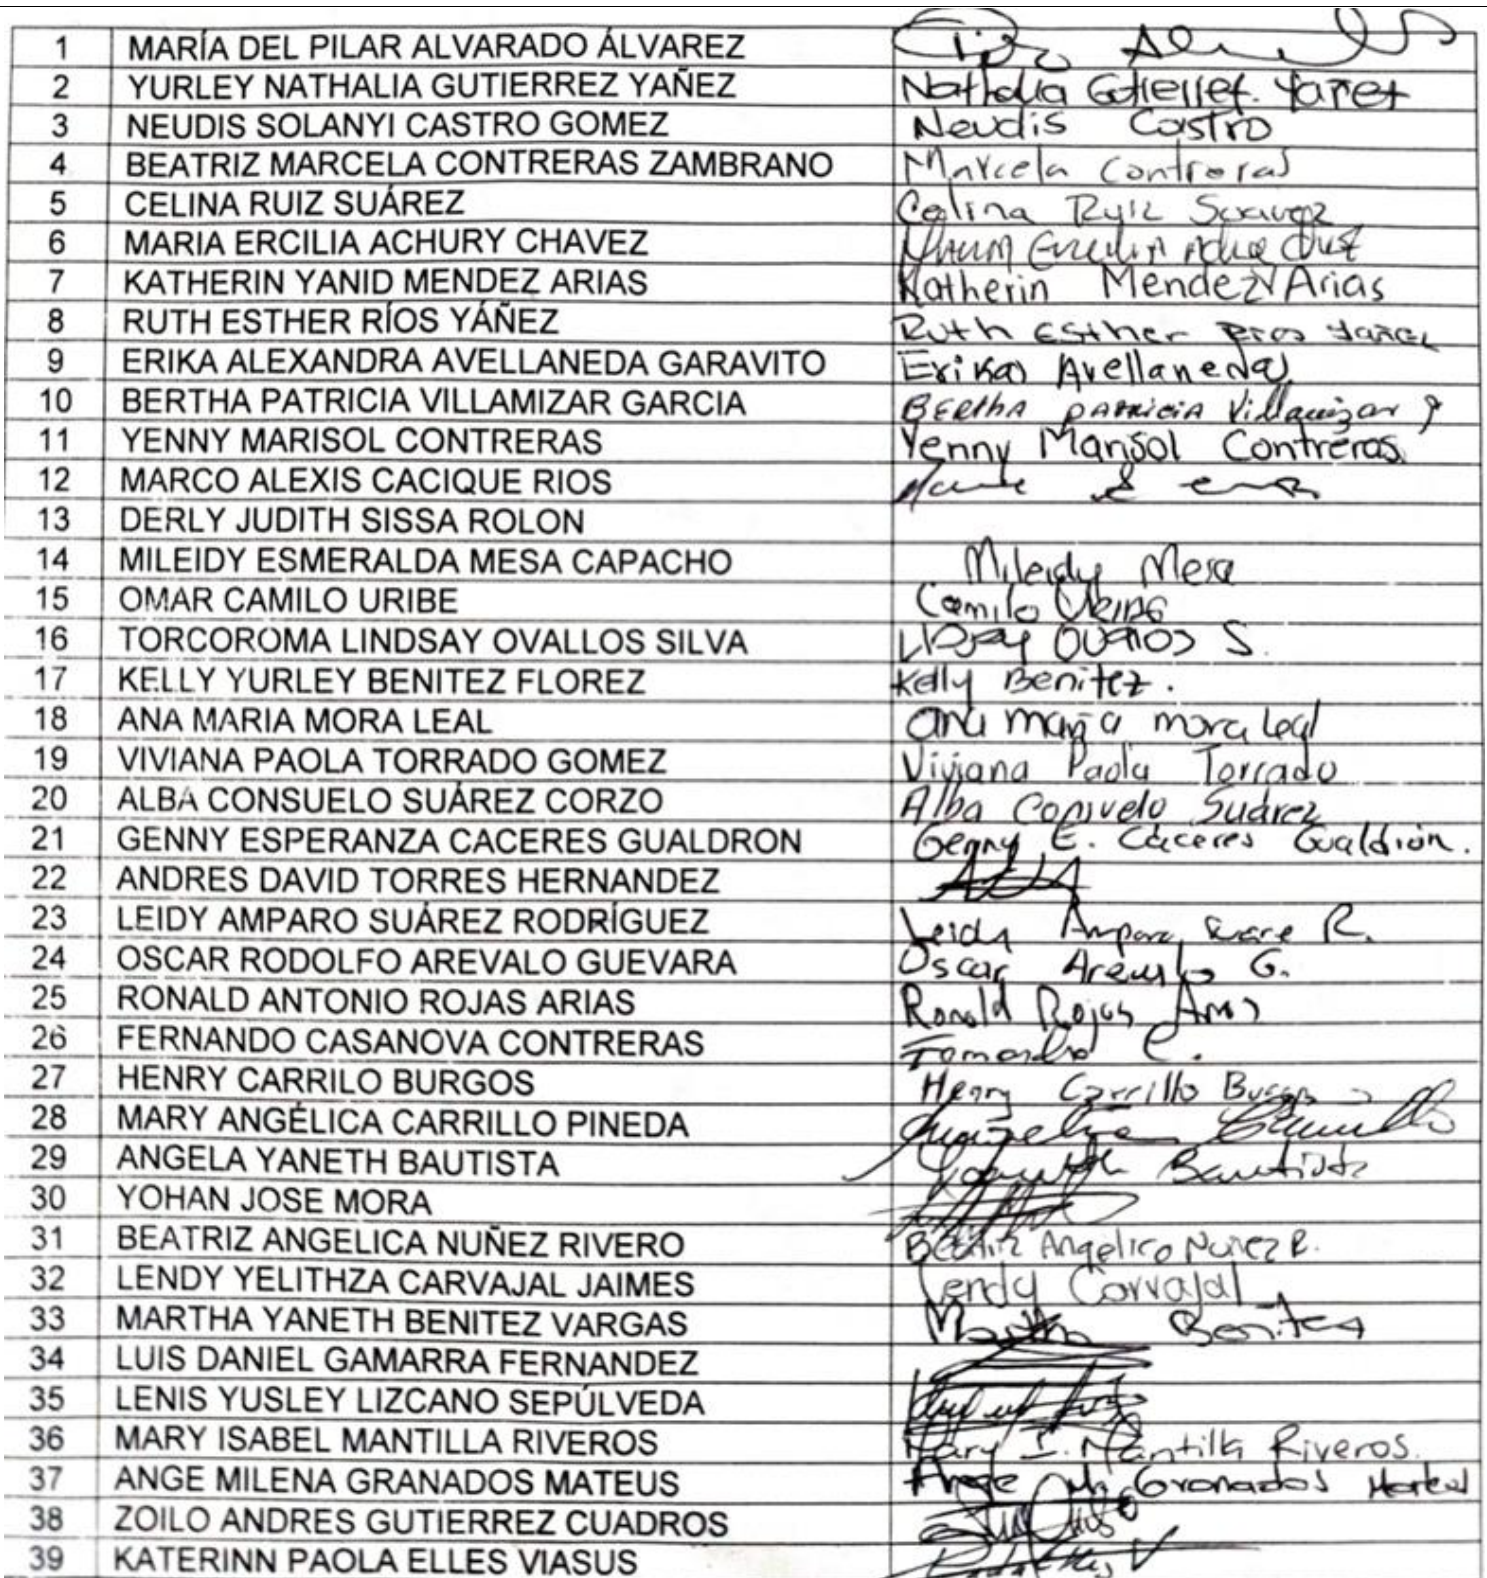 1 MARÍA DEL PILAR ALVARADO ÁLVAREZ
2 YURLEY NATHALIA GUTIERREZ YAÑEZ Nathalia Gutierrez Yañez
3 NEUDIS SOLANYI CASTRO GOMEZ Neudis Castro
4 BEATRIZ MARCELA CONTRERAS ZAMBRANO Marcela Contreras
5 CELINA RUIZ SUÁREZ Celina Ruiz Suarez
6 MARIA ERCILIA ACHURY CHAVEZ
7 KATHERIN YANID MENDEZ ARIAS Katherin Mendez Arias
8 RUTH ESTHER RÍOS YÁÑEZ Ruth Esther Rios Yañez
9 ERIKA ALEXANDRA AVELLANEDA GARAVITO Erika Avellaneda
10 BERTHA PATRICIA VILLAMIZAR GARCIA BERTHA PATRICIA Villamizar g
11 YENNY MARISOL CONTRERAS Yenny Marisol Contreras
12 MARCO ALEXIS CACIQUE RIOS
13 DERLY JUDITH SISSA ROLON
14 MILEIDY ESMERALDA MESA CAPACHO Mileidy Mesa
15 OMAR CAMILO URIBE Camilo Uribe
16 TORCOROMA LINDSAY OVALLOS SILVA OVallos S.
17 KELLY YURLEY BENITEZ FLOREZ Kelly Benitez.
18 ANA MARIA MORA LEAL ana maria mora leal
19 VIVIANA PAOLA TORRADO GOMEZ Viviana Paola Torrado
20 ALBA CONSUELO SUÁREZ CORZO Alba Consuelo Suárez
21 GENNY ESPERANZA CACERES GUALDRON Genny E. Cáceres Gualdrón.
22 ANDRES DAVID TORRES HERNANDEZ
23 LEIDY AMPARO SUÁREZ RODRÍGUEZ Leidy Amparo R.
24 OSCAR RODOLFO AREVALO GUEVARA Oscar Arevalo G.
25 RONALD ANTONIO ROJAS ARIAS Ronald Rojas Arias
26 FERNANDO CASANOVA CONTRERAS Fernando C.
27 HENRY CARRILO BURGOS Henry Carrillo Burgos
28 MARY ANGÉLICA CARRILLO PINEDA
29 ANGELA YANETH BAUTISTA Yaneth Bautista
30 YOHAN JOSE MORA
31 BEATRIZ ANGELICA NUÑEZ RIVERO Beatriz Angelica Nuñez R.
32 LENDY YELITHZA CARVAJAL JAIMES Lendy Carvajal
33 MARTHA YANETH BENITEZ VARGAS Martha Benitez
34 LUIS DANIEL GAMARRA FERNANDEZ
35 LENIS YUSLEY LIZCANO SEPÚLVEDA
36 MARY ISABEL MANTILLA RIVEROS Mary I. Mantilla Riveros.
37 ANGE MILENA GRANADOS MATEUS Ange M. Granados Mateus
38 ZOILO ANDRES GUTIERREZ CUADROS
39 KATERINN PAOLA ELLES VIASUS Paola Elles V